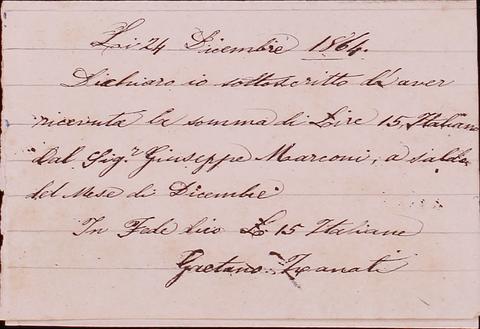 Li 24 Dicembre 1864.
Dichiaro io sottoscritto d'aver
ricevuta la somma di Lire 15, Italiane
dal Sig.r Giuseppe Marconi, a saldo
del Mese di Dicembre
In Fede dico L 15 Italiane
Gaetano Zanati